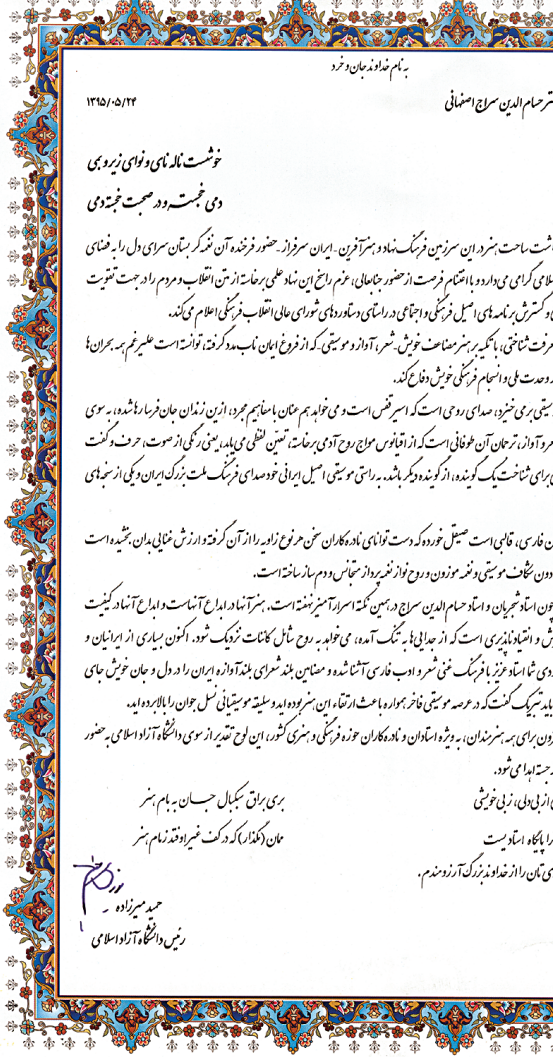 به نام خداوند جان و خرد
حسام الدین سراج اصفهانی
۱۳۹۵/۰۵/۲۴
خوشست ناله نای و نوای زیر و بمی
دمی خجسته و در صحبت خجسته دمی
ساحت هنر در این سرزمین فرهنگ نهاد و هنرآفرین - ایران سرفراز - حضور فرخنده آن نغمه گر بستان سرای دل را به فضای
گرامی می دارد و با اغتنام فرصت از حضور جنابعالی، عزم راسخ این نهاد علمی برخاسته از متن انقلاب و مردم را در جهت تقویت
و گسترش برنامه های اصیل فرهنگی و اجتماعی در راستای دستاوردهای شورای عالی انقلاب فرهنگی اعلام می کند.
شناختی، با تکیه بر هنر مضاعف خویش - شعر، آواز و موسیقی - که از فروغ ایمان ناب مدد گرفته، توانسته است علیرغم همه بحران ها
وحدت ملی و انسجام فرهنگی خویش دفاع کند.
برمی خیزد، صدای روحی است که اسیر قفس است و می خواهد هم عنان با مفاهیم مجرد، از این زندان جان فرسا رها شده، به سوی
و آواز، ترجمان آن طوفانی است که از اقیانوس مواج روح آدمی برخاسته، تعین لفظی می یابد، یعنی رنگی از صوت، حرف و گفت
برای شناخت یک گوینده، از گوینده دیگر باشد. به راستی موسیقی اصیل ایرانی خود صدای فرهنگ ملت بزرگ ایران و یکی از سجه های
فارسی، قالبی است صیقل خورده که دست توانای نادره کاران سخن هر نوع زاویه را از آن گرفته و ارزش غنایی بدان بخشیده است
شکاف موسیقی و نغمه موزون و روح نواز نغمه پرداز متجانس و دم ساز ساخته است.
استاد شجریان و استاد حسام الدین سراج در همین نکته اسرارآمیز نهفته است. هنر آنها در ابداع آنهاست و ابداع آنها در کیفیت
و انقیادناپذیری است که از جدایی ها به تنگ آمده، می خواهد به روح شامل کائنات نزدیک شود. اکنون بسیاری از ایرانیان و
شما استاد عزیز با فرهنگ غنی شعر و ادب فارسی آشنا شده و مضامین بلند شعرای بلندآوازه ایران را در دل و جان خویش جای
باید تبریک گفت که در عرصه موسیقی فاخر همواره باعث ارتقاء این هنر بوده اید و سلیقه موسیقیائی نسل جوان را بالا برده اید.
برای همه هنرمندان، به ویژه استادان و نادره کاران حوزه فرهنگی و هنری کشور، این لوح تقدیر از سوی دانشگاه آزاد اسلامی به حضور
اهدا می شود.
از بی دلی، ز بی خویشی
بری براق سبکبال حسان به بام هنر
را پایگاه استادیست
ممان (مگذار) که در کف غیر اوفتد زمام هنر
تان را از خداوند بزرگ آرزومندم.
حمید میرزاده
رئیس دانشگاه آزاد اسلامی